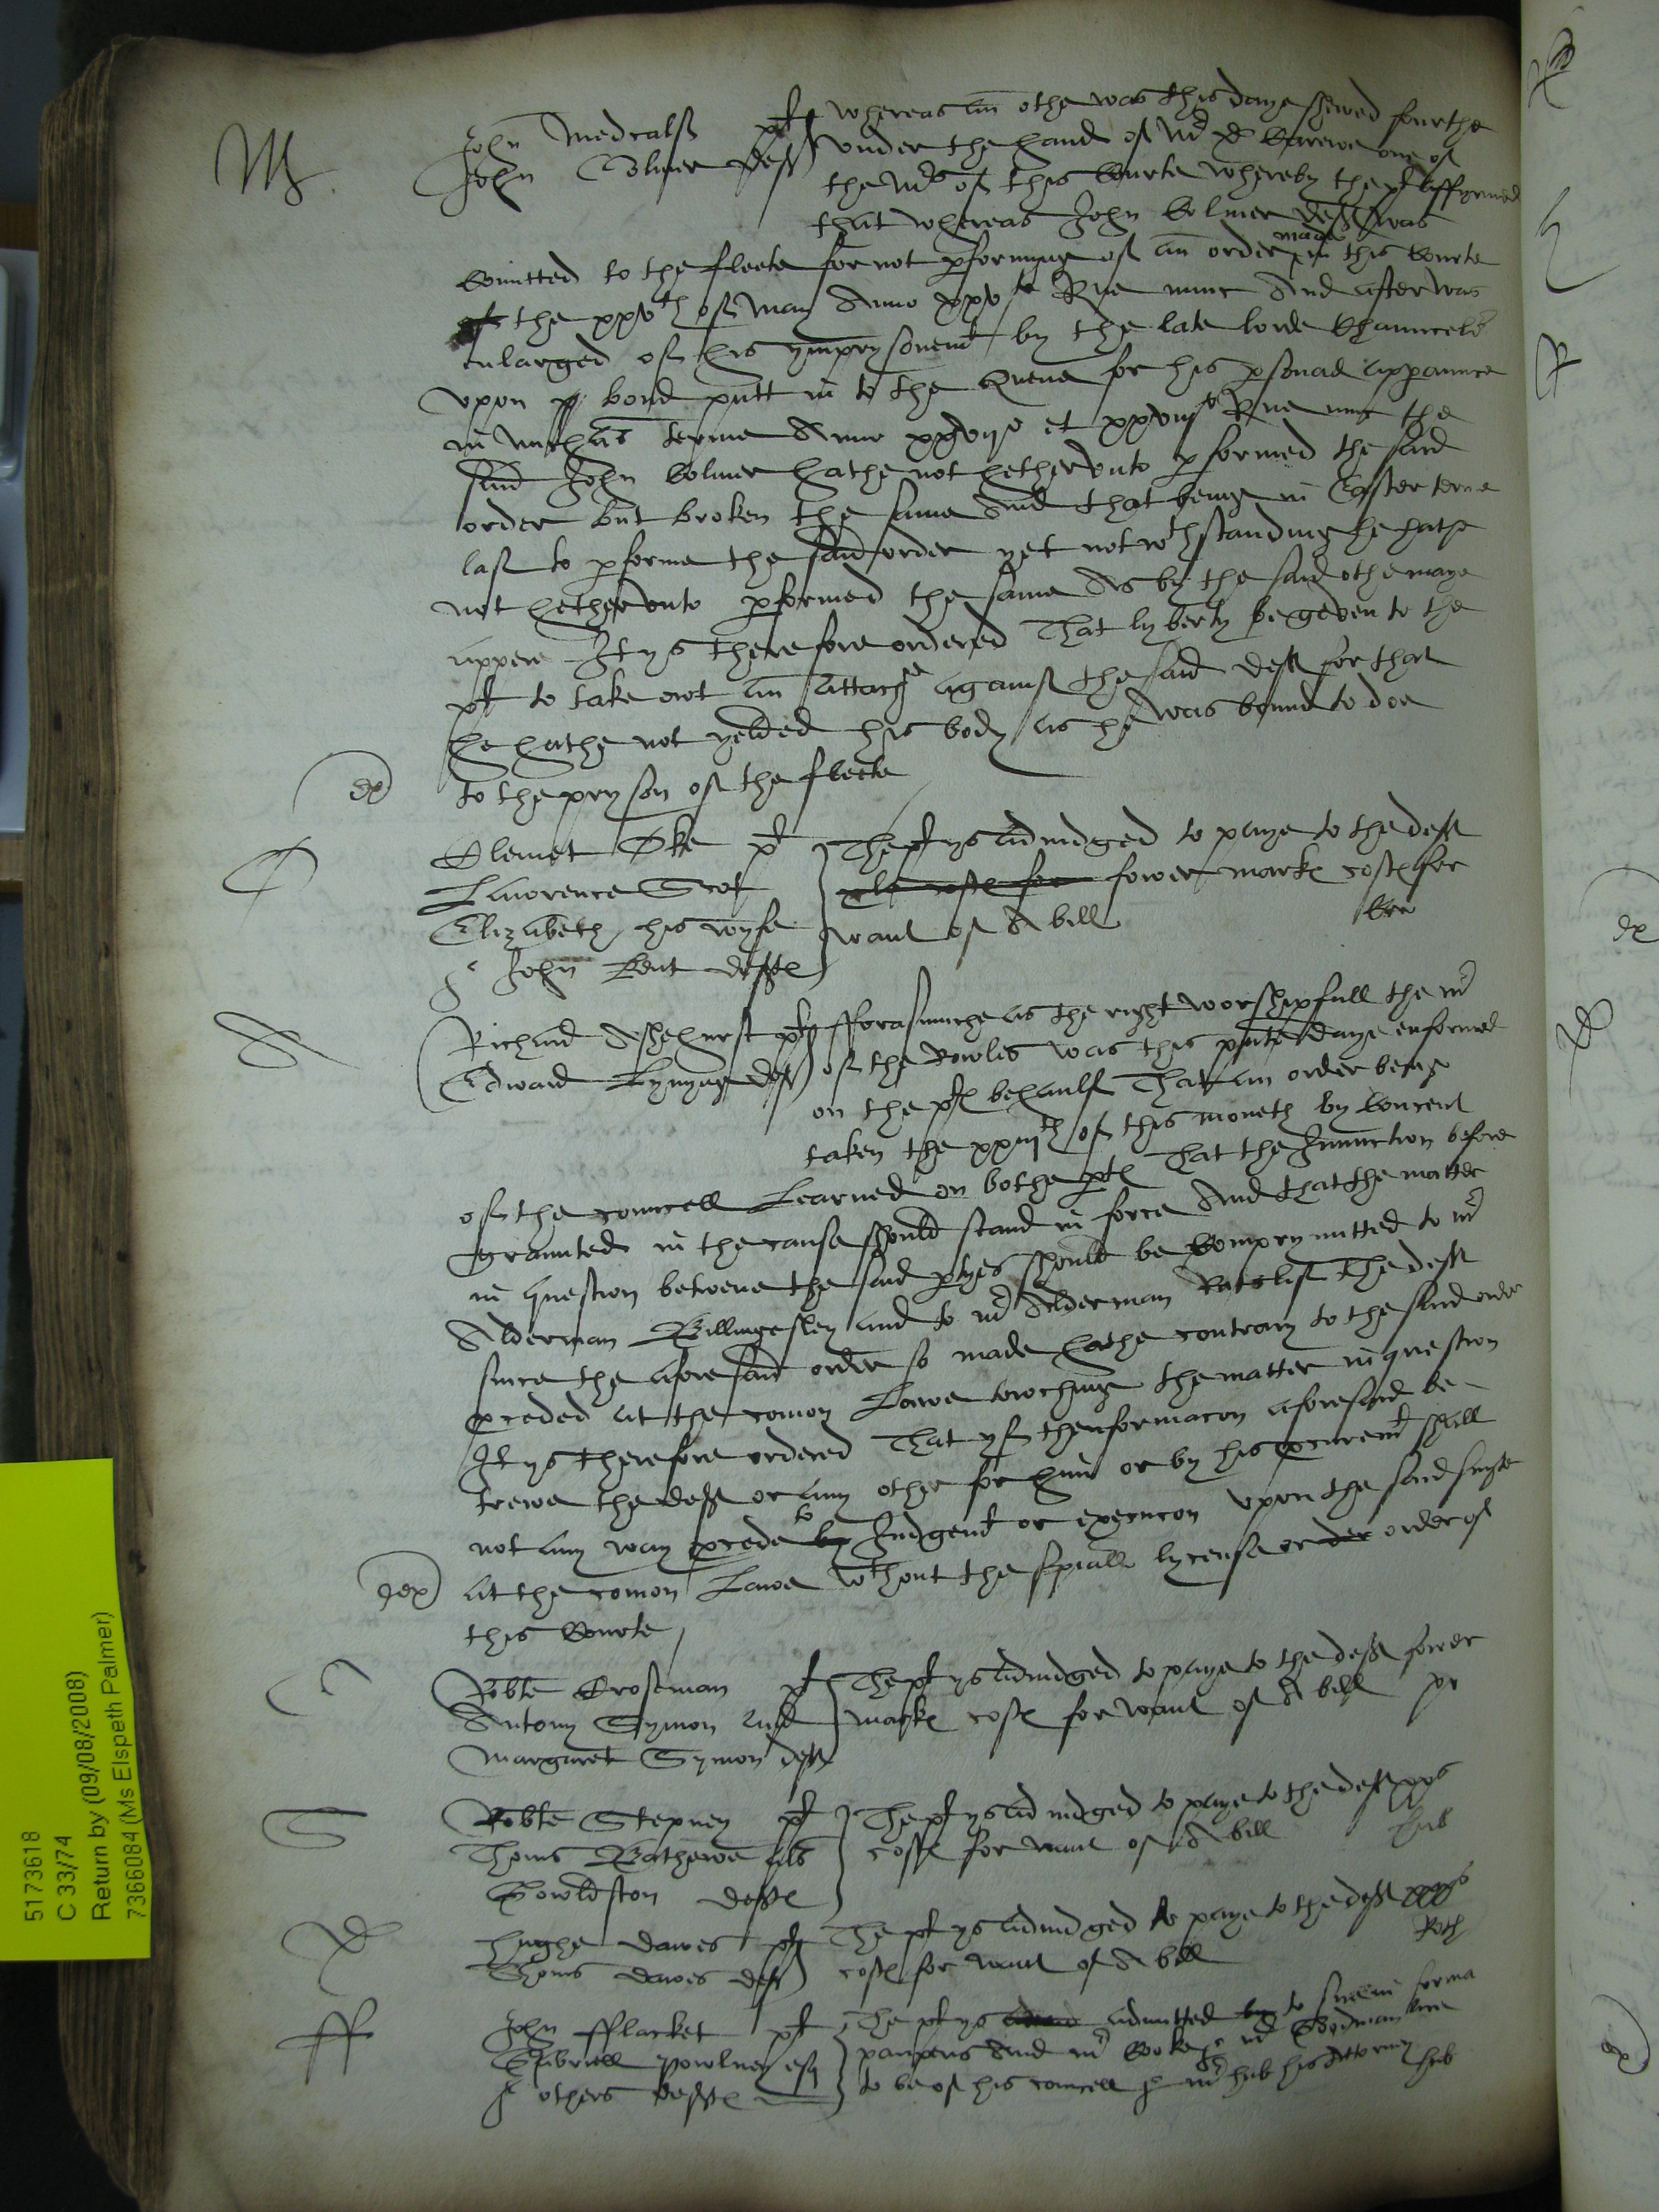 M
John Medcalf pt
John Colmer deft
whereas an othe was this daye shewed fourthe
under the hand of Mr D Carewe one of
the Mrs of this Courte whereby the pt affyrmed
that whereas John Colmer deft was
Comitted to the fleete for not pformyng of an order made in this Courte
the xxvth of May Anno xxvto Rne nunc And after was
enlarged of his ymprysonemt by the late lorde Chauncelor
upon bond putt in to the Quene for his psonall apparance
in Mychas terme Anno xxvijo et xxviijo Rne nunc the
said John Colmer hathe not hetherunto pformed the said
order but broken the same And that being in Easter terme
last to pforme the said order yet notwthstanding he hath
not hetherunto pformed the same As by the said othe maye
appere It ys therefore ordered That lyberty be geven to the
pt to take owt an attachmt against the said deft for that
he hathe not yelded his body as he was bound to doe
to the pryson of the fleete
ex
C
Clemet Oke pt
Lawrence Scot
Elizabeth his wyfe
& John Kent defts
The pt ys adiudged to paye to the deft
fower marks costs for
want of A bill
A
Richard Ashehurst pt
Edward Kynnyng deft
fforasmuche as the right worshipfull the Mr
of the Rowles was this pnte daye enformed
on the pts behaulf That an order being
taken the xxiijth of this moneth by Concent
of the councell Learned on bothe pts That the Iniunction before
graunted in the cause should stand in force And that the matter
in question betwene the said ptyes should be Compromitted to Mr
Alderman Billingesley and to Mr Alderman Ratclif The deft
since the aforesaid order so made hathe contrary to the said order
pceded at the comon Lawe towching the matter in question
It ys therefore ordered That yf thenformacon aforesaid be
trewe the deft or any other for him or by his pcuremt shall
not any way pcede to by Iudgemt or execucon upon the said suyte
at the comon Lawe wthout the spiall lycense order order of
this Courte
ex
C
Robte Croseman pt
Antony Symon and
Margaret Symon deft
The pt ys adiudged to paye to the deft fower
marks costs for want of A bill
S
Robte Stepney pt
Thoms Bathewe als
Gowldston defts
The pt ys adiudged to paye to the deft xxs
costs for want of A bill
hub
D
Hughe dawes pt
Thoms dawes deft
The pt ys adiudged to paye to the deft
costs for want of A bill
Roth
ff
John fflacket pt
Gabriell Powlney esq
& others defts
The pt ys admitted to sue in forma
paupris And Mr Cooke & Mr Goodman
to be of his councell & Mr hub his Attorney
hub
ex
5173618
C 33/74
Return by (09/08/2008)
7366084 (Ms Elspeth Palmer)